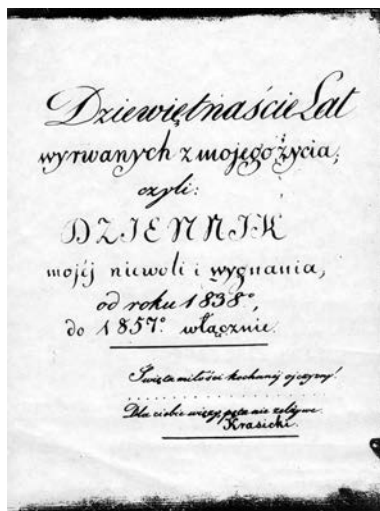 Dziewiętnaście Lat
wyrwanych z mojego życia,
czyli:
DZIENNIK
mojéj niewoli i wygnania,
od roku 1838º,
do 1857º włącznie.
Święta miłości kochanéj ojczyzny!
. . . . . . . . . . . . . . . . . . . .
Dla ciebie więzy, pęta nie zelżywe.
Krasicki.